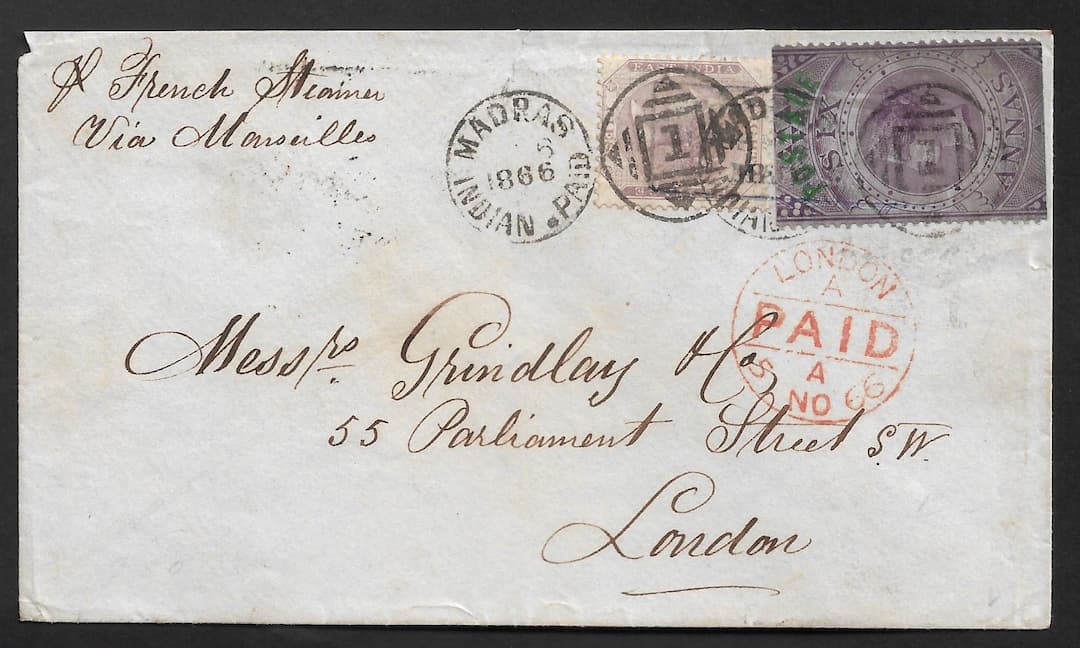 pr French Steamer
Via Marseilles
MADRAS
1866
INDIAN PAID
EAST INDIA
1
POSTAGE
SIX ANNAS
LONDON
A
PAID
A
5 NO 66
Messrs Grindlay & Co
55 Parliament Street S.W.
London